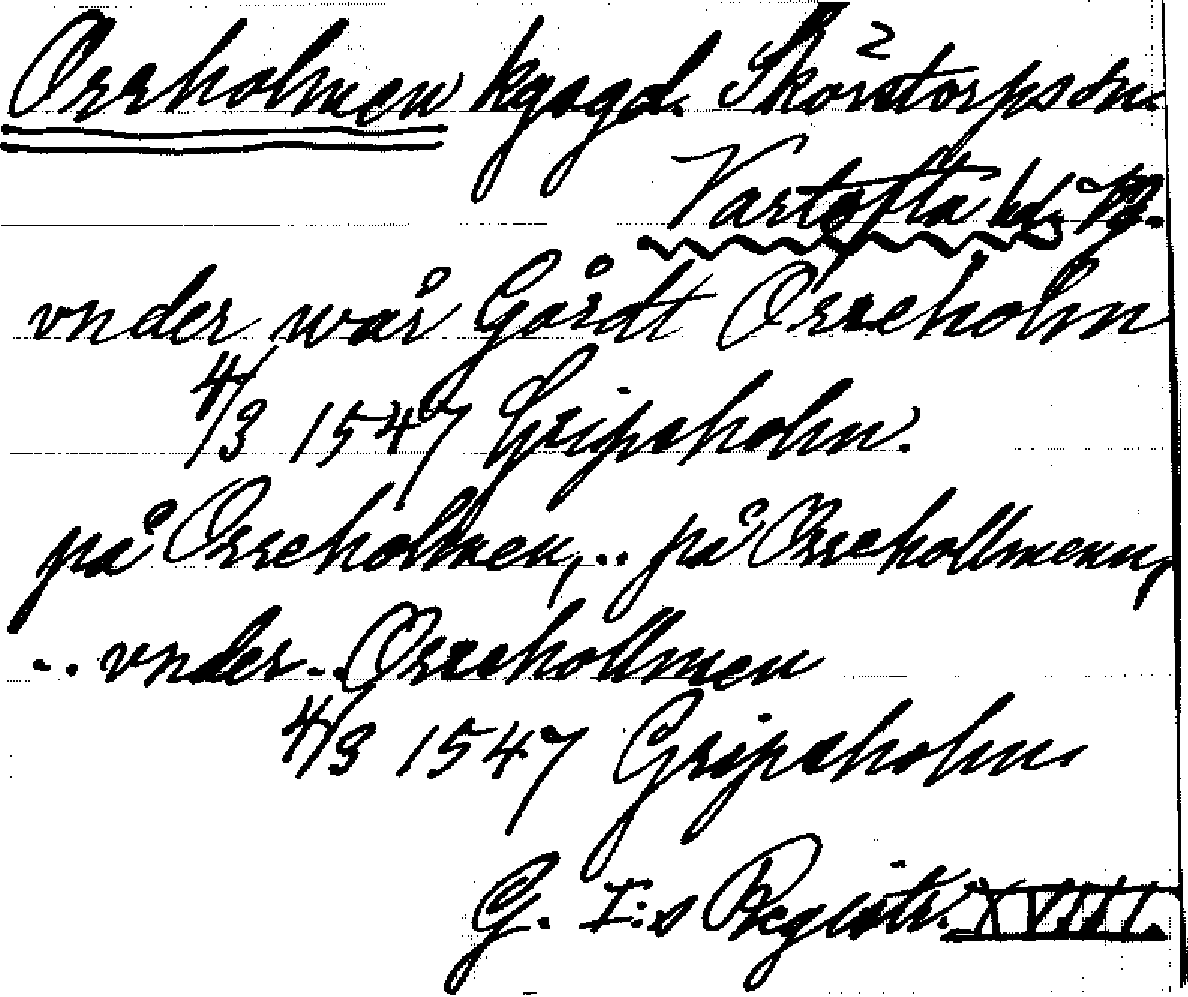 Orrholmen kgsgd. Skörstorps sn.
2
Vartofta hd, Vg.
vnder wår Gårdt Orreholm
4/3 1547 Gripsholm.
på Orreholmen, .. på Orrehollmenn,
.. vnder .. Orrehollmen
4/3 1547 Gripsholm.
G. I:s Registr. XVIII.